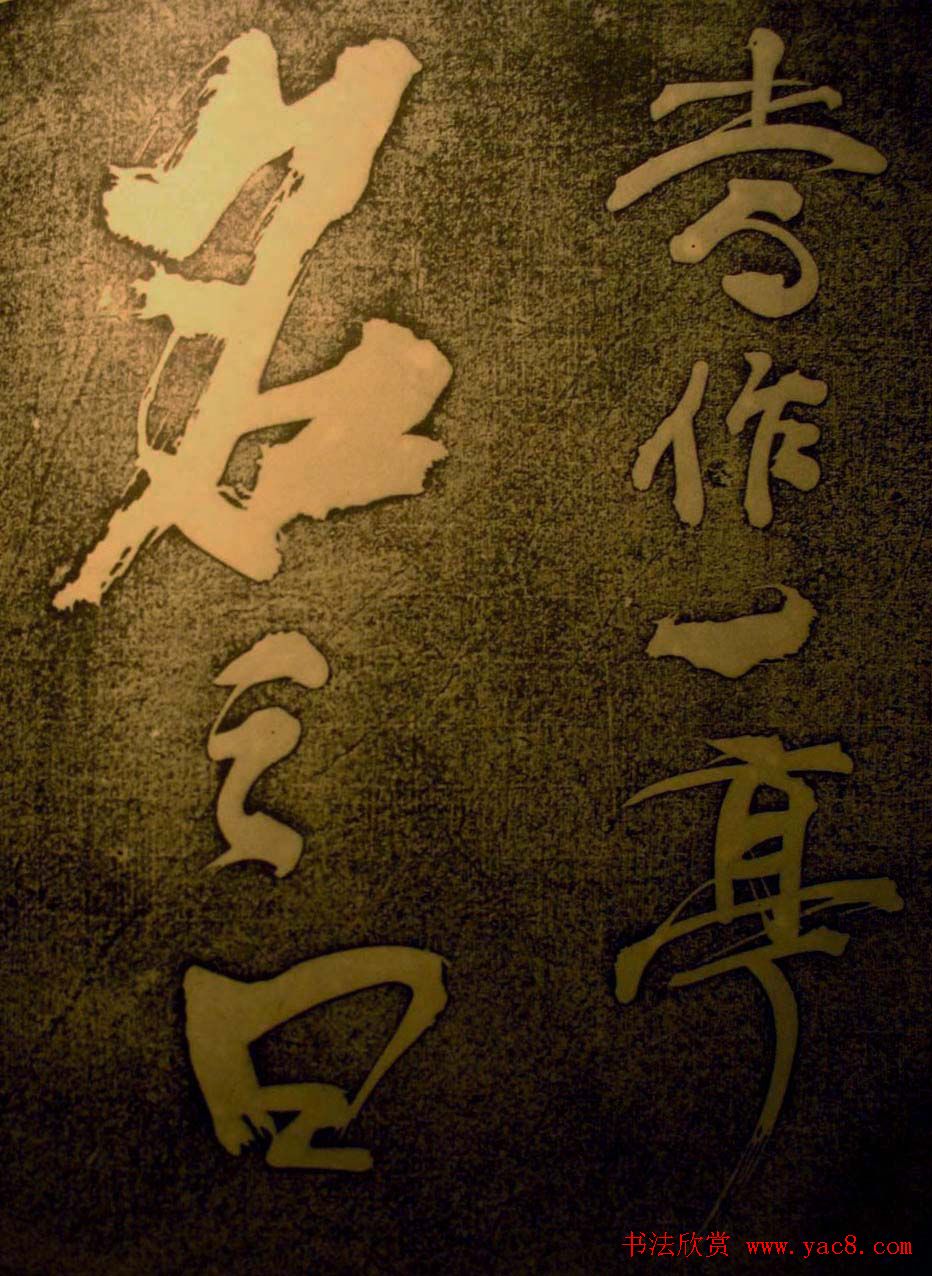 作一亭
之曰
书法欣赏 www.yac8.com